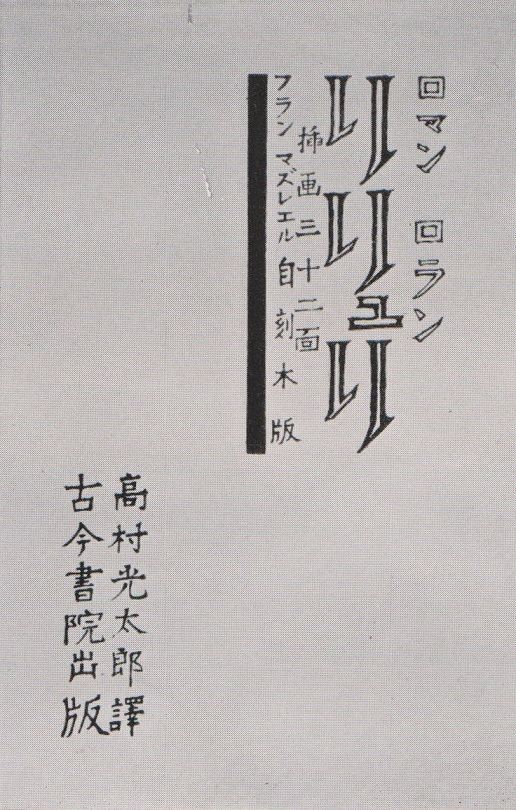 ロマン ロラン
リリュリ
挿画三十二面
フラン マズレエル自刻木版
高村光太郎譯
古今書院出版